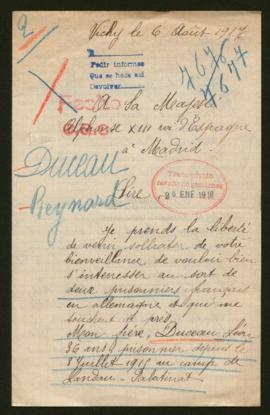 2
Vichy le 6 Août 1917
A
Pedir informes
Que se haga así
Devolver
7677
A Sa Majesté
Alphonse XIII roi d'Espagne
à Madrid.
Duceau
Reynard
Sire
ENE. 1918
Je prends la liberté
de venir solliciter de votre
bienveillance de vouloir bien
s'interesser au sort de
deux prisonniers français
en allemagne et qui me
touchent de près
Mon frère, Duceau
36 ans prisonnier depuis le
8 Juillet 1915 au camp de
Landau-Palatinat